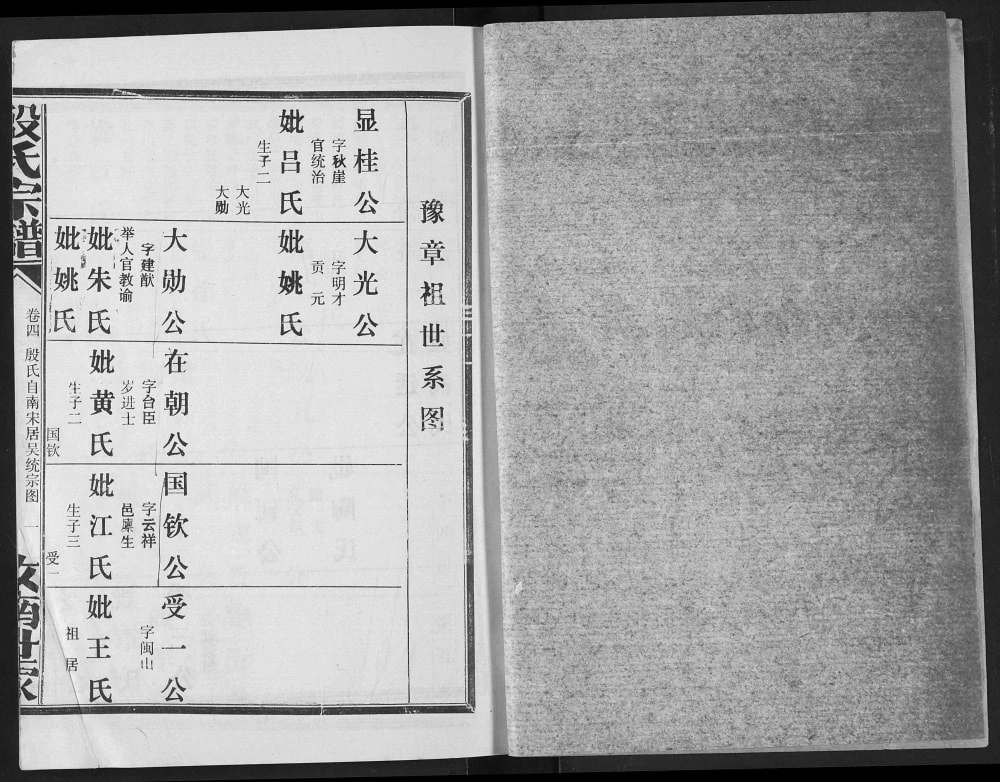 豫章祖世系图
显桂公
字秋崖
官统治
妣吕氏
生子二
大光
大勋
大光公
字明才
贡元
妣姚氏
大勋公
字建猷
举人官教谕
妣朱氏
妣姚氏
在朝公
字台臣
岁进士
妣黄氏
生子二
国钦
国钦公
字云祥
邑廪生
妣江氏
生子三
受一
受一公
字闽山
妣王氏
祖居
殷氏宗谱
卷四
殷氏自南宋居吴统宗图
一